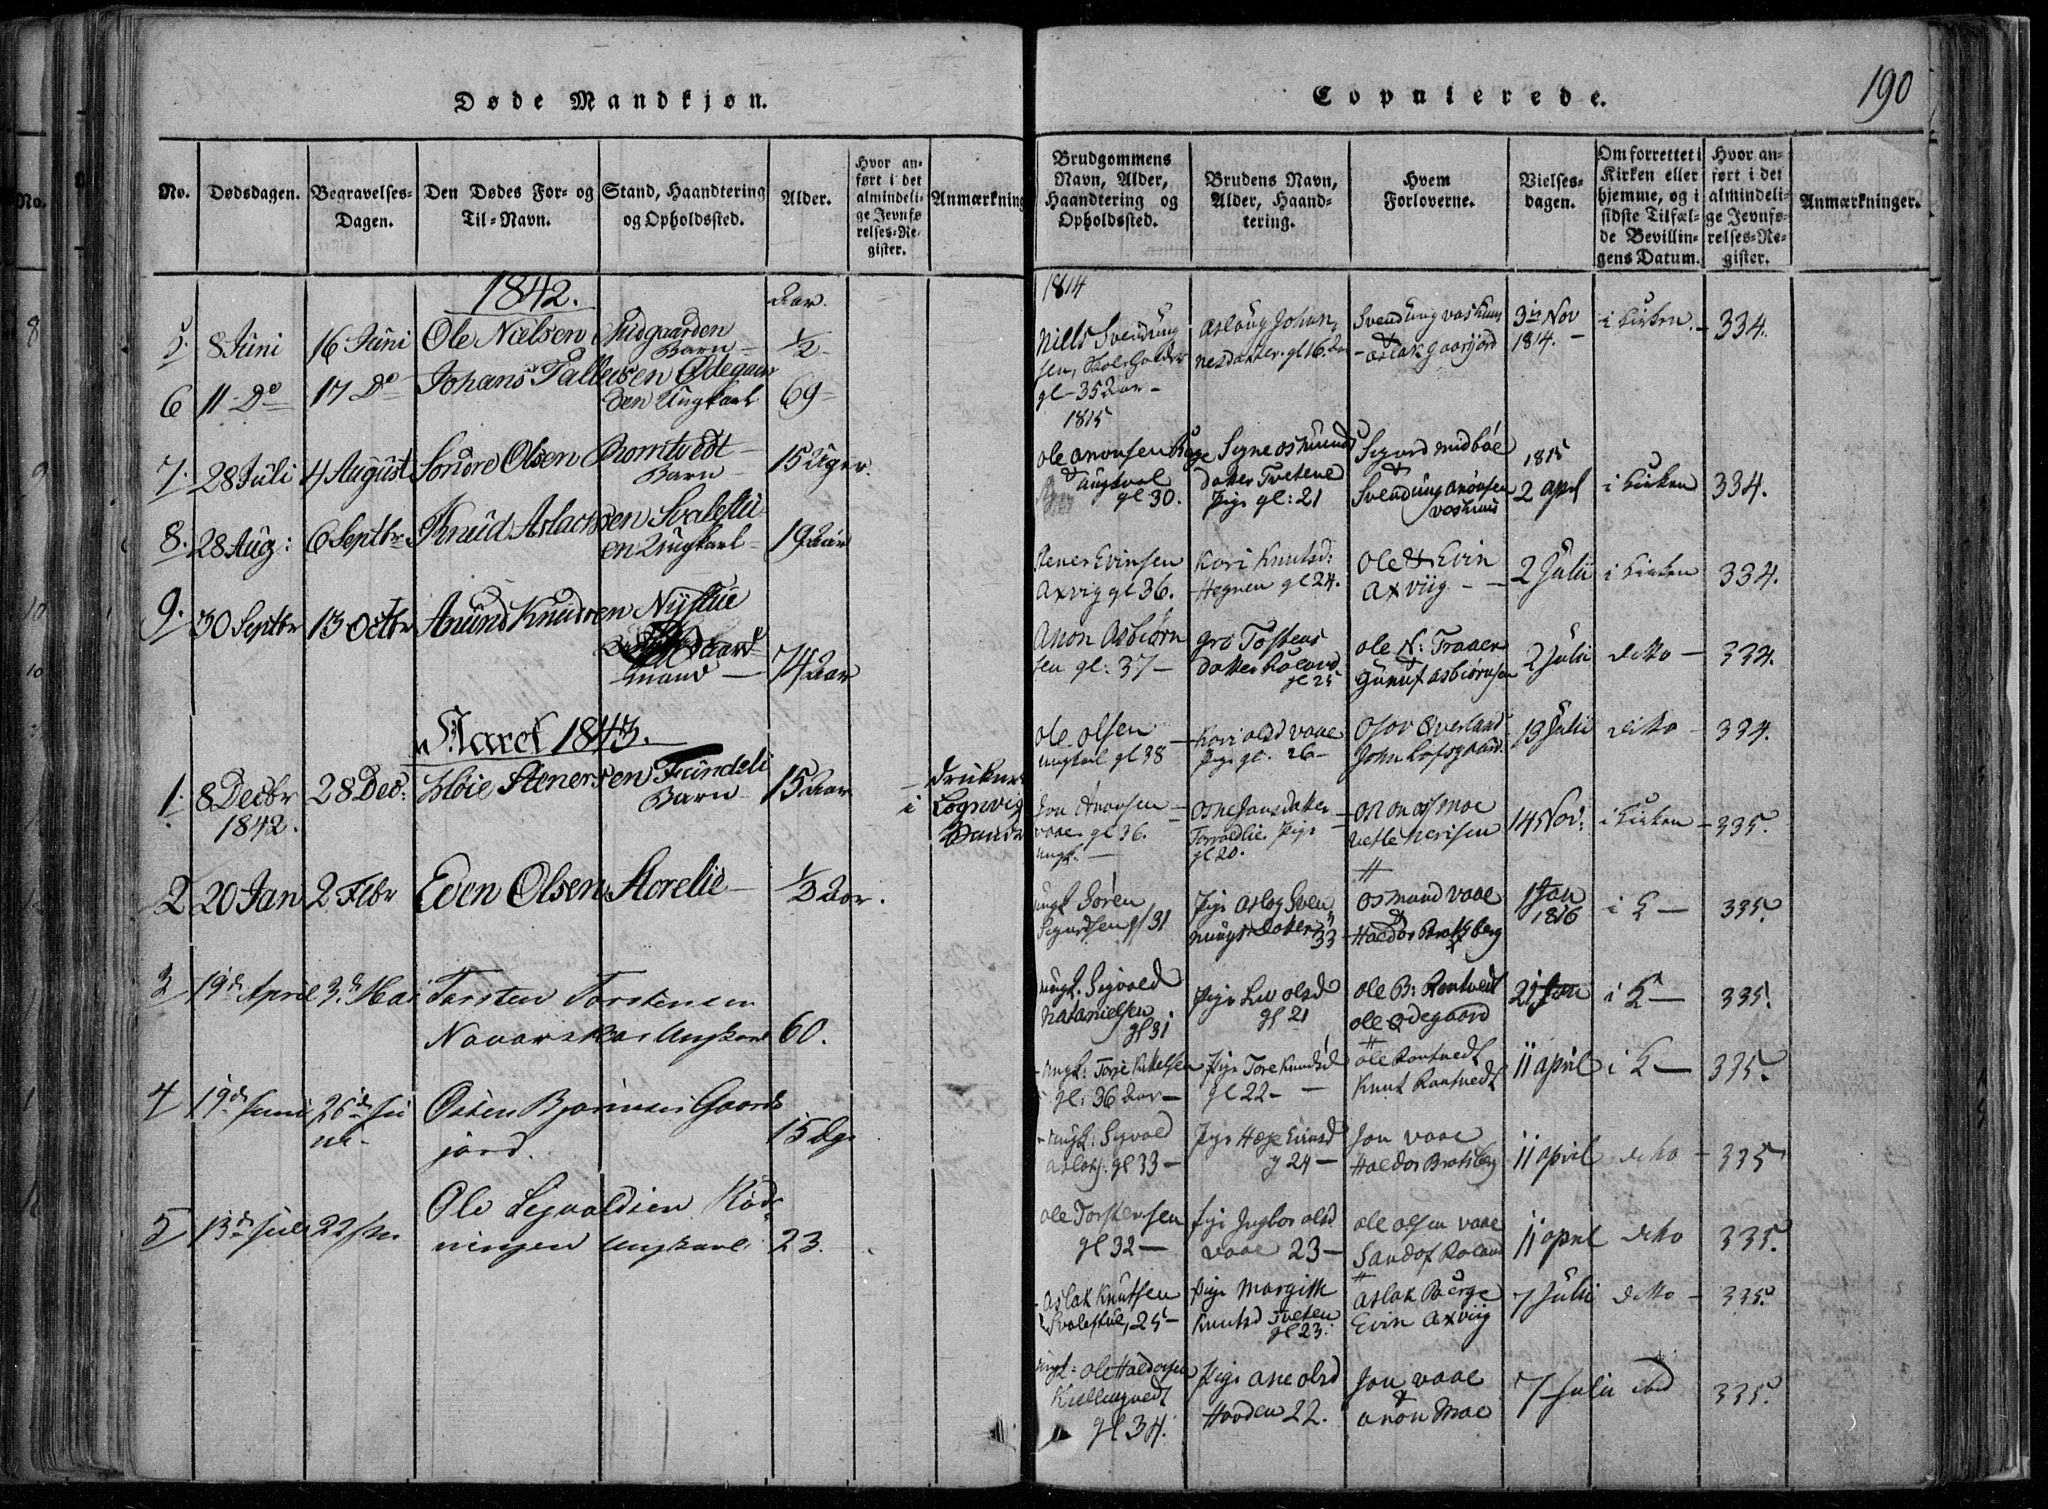 Døde Mandkjøn.
No.
Dødsdagen.
Begravelses-
Dagen.
Den Dødes For- og
Til-Navn.
Stand, Haandtering
og Opholdssted.
Alder.
Hvor an-
ført i det
almindeli-
ge Jevnfø-
relses-Re-
gister.
Anmærkning
1842.
Aar.
5. 8 Juni 16 Juni Ole Nielsen Midgaarden
Barn - 1/2 -
6 11 Do 17 Do Johans Tallefsen Ødegaar
den Ungkarl 69 -
7. 28 Juli 4 August Sondre Olsen Bromtvedt -
Barn - 15 Uger.
8. 28 Aug: 6 Septbr Knud Aslacksen Svalestu
en Ungkarl - 19 Aar
9. 30 Septbr 13 Octbr Anund Knudsen Nystue
Gaard
mand - 74 Aar
Aaret 1843.
1. 8 Decbr 28 Dec: Høie Stenersen Tundeli
1842. Barn - 15 Aar - Druknet
i Lognvig
Vandn
2 20 Jan 2 Febr Even Olsen Storelie - 1/3 Aar.
3 19de April 3de Mai Torsten Torstensen
Navarskar Ungkarl 60.
4 19de Juni 26de Ju
ni - Østen Bjørnsen Gaards
jord. 15 Dge
5 13de Juli 22 Juli Ole Sigvaldsen Rød
ningen Ungkarl 23.
Copulerede.
190
Brudgommens
Navn, Alder,
Haandtering og
Opholdssted.
Brudens Navn,
Alder, Haand-
tering.
Hvem
Forloverne.
Vielses-
dagen.
Om forrettet i
Kirken eller
hjemme, og i
sidste Tilfæl-
de Bevillin-
gens Datum.
Hvor an-
ført i det
almindeli-
ge Jevnfø-
relses-Re-
gister.
Anmærkninger.
1814
Nills Svendung
sen, Skoleholder
gl - 35 Aar -
Aslaug Johan,
nesdatter. gl 16. Aar
Svendung Vaskuus
& Aslak Gaarjord
3die Nov
1814. -
i Kirken. - 334.
1815
Ole Anonsen
Ungkarl
gl 30.
Pige Signe Osmunds
datter Tvetene
Pige gl: 21
Sigvrd Midbøe
&
Svendung Anonsen
Vaskuus
1815
2 Apl
i Kirken 334.
Stener Evinsen
Axvig gl 36.
Kari Knutsd:
Hegnen gl 24.
Ole & Evin
Axviig - -
2 Julii i Kirken 334.
Anon Asbiørn
sen gl: 37 -
Gro Tostens
datter Roland
gl 25
Ole N: Traaen
Gunuf Asbiørnsen
2 Julii ditto - 334.
Ole Olsen -
Ungkarl gl 38
Kari Olsd Vaae
Pige gl. 26 -
Osov Øverland
John Lofsgaard.
19 Julii ditto - 334.
Jon Anonsen -
Vaae. gl 36.
ungk. -
Osne Jansdatter
Torvaldlie Pige
gl 20.
Osmon Osmoe
Vetle Nerisen
14 Nov: i Kirken - 335.
ungk Søren
Sigurdsen gl 31
Pige Aslog Sven
nungsdatter 33
Osmund Vaae
&
Haldor Bratsberg
1 Jan
1816
i K - 335.
ungk. Sigvald
Natanielsen
gl 31
Pige Liv Olsd
gl 21
Ole B: Rantvedt
Ole Ødegaard
21 Jan i K - 335.
- ungk: Torje Kittelsen
gl: 36 Aar -
Pige Tore Knudsd
gl 22 - -
Ole Rantvedt
Knut Rantvedt
11 April i K - 335.
- ungk: Sigvald
Aslaks. gl 33 -
Pige Hæge Evinsd
gl 24 -
Jon Vaae
Haldor Bratsberg
11 April ditto - 335
Ole Torstensen
gl 32 -
Pige Ingbor Olsd
Vaae 23 -
Ole Olsen Vaae
Sandof Roland
11 April ditto 335.
- Aslak Knutsen
Svalestul, 25 -
Pige Margith
Knutsd Tveten
gl 23.
Aslak Berge
Evin Axviig
7 Julii ditto - 335.
ungk: Ole Haldorsen
Killingvedt
gl 34.
Pige Ane Olsd
Hovden 22.
Jon Vaae
&
Anon Moe
7 Julii ibd 335.